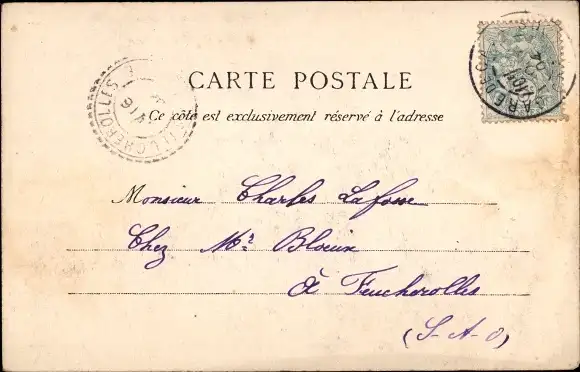 CARTE POSTALE
Ce côté est exclusivement réservé à l'adresse
Monsieur Charles Lafosse
Chez Mr
à Feucherolles
(S-A-O)
FEUCHEROLLES
GARE DE